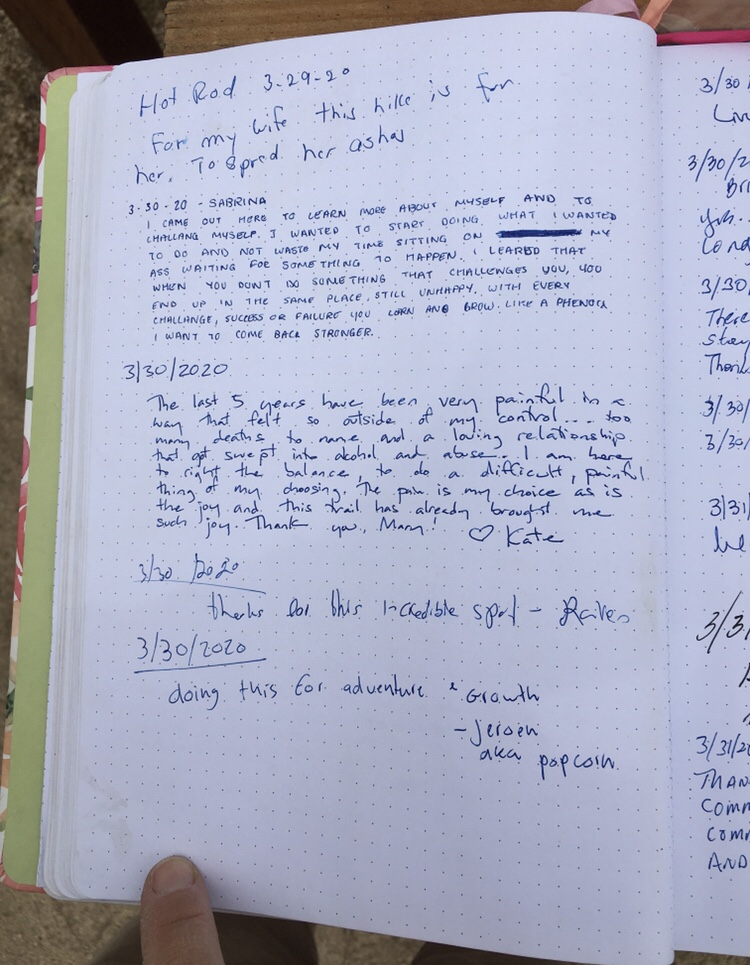 Hot Rod 3-29-20
For my wife this hike is for
her. To spred her ashas
3.30.20 - SABRINA
I CAME OUT HERE TO LEARN MORE ABOUT MYSELF AND TO
CHALLANG MYSELF. I WANTED TO START DOING WHAT I WANTED
TO DO AND NOT WASTE MY TIME SITTING ON MY
ASS WAITING FOR SOMETHING TO HAPPEN. I LEARED THAT
WHEN YOU DON'T DO SOMETHING THAT CHALLENGES YOU, YOU
END UP IN THE SAME PLACE, STILL UNHAPPY. WITH EVERY
CHALLANGE, SUCCESS OR FAILURE YOU AND GROW. LIKE A
I WANT TO COME BACK STRONGER.
3/30/2020
The last 5 years have been very painful in a
way that felt so outside of my control... too
many deaths to name and a loving relationship
that got swept into alcohol and abuse.. I am here
to right the balance, to do a difficult, painful
thing of my choosing. The pain is my choice as is
the joy and this trail has already brought me
such joy. Thank you, Mary! ♡ Kate
3/30/2020
thanks for this incredible spot - Raven
3/30/2020
doing this for adventure & Growth
- Jeroen
aka popcorn
3/30
3/30/2
3/30/
There
stay
Thank
3/30/
3/30/
3/31
3/3
3/31/20
THAN
COMM
COMM
AND